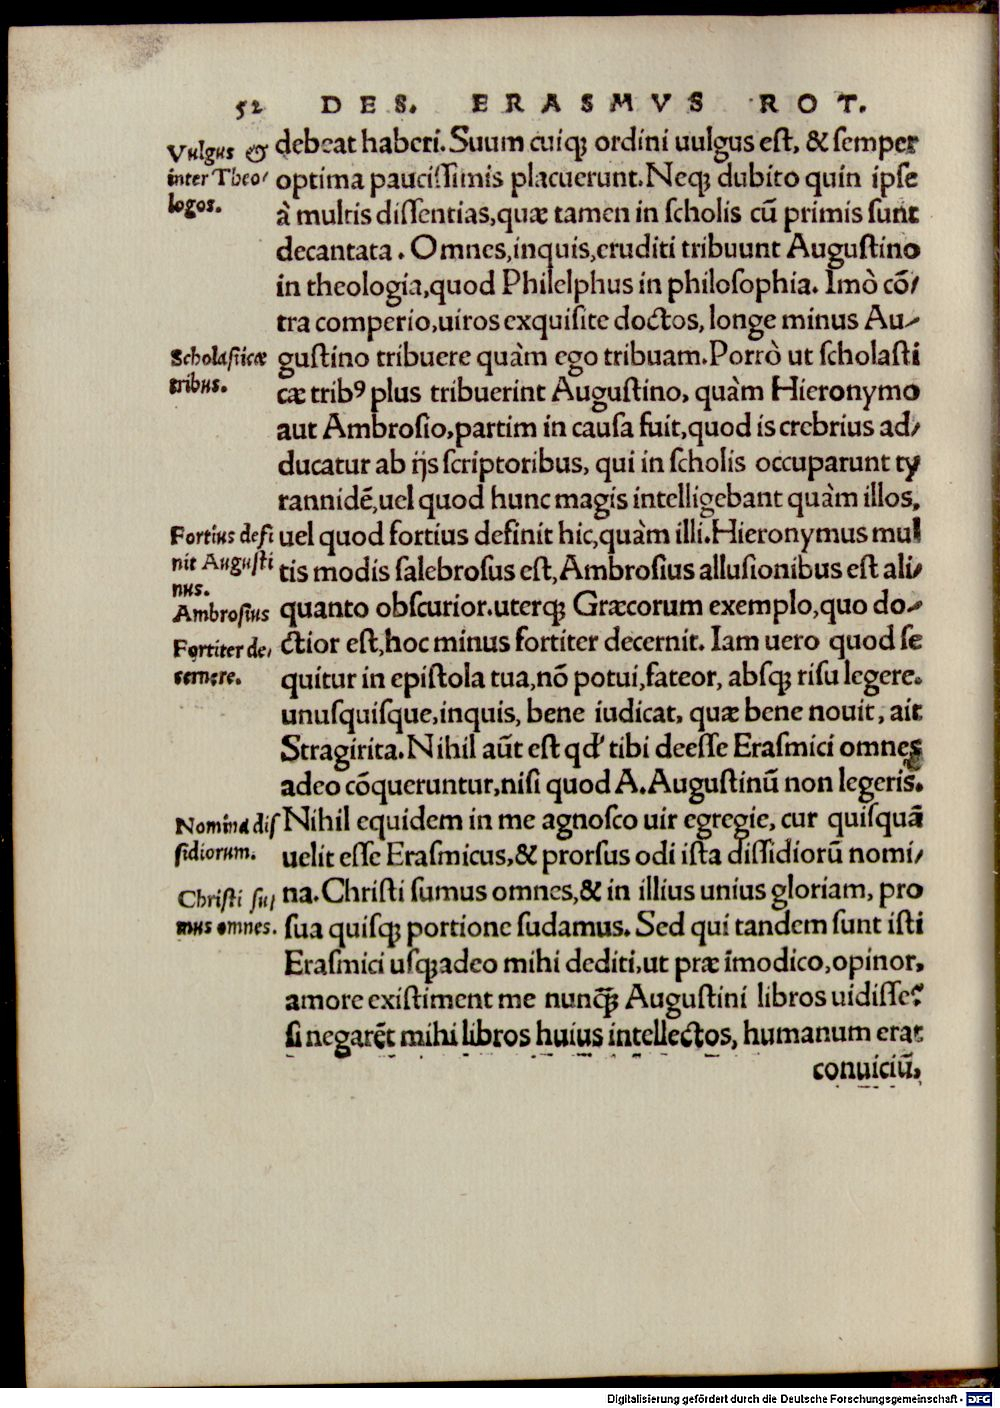 52 DES. ERASMVS ROT.
Vulgus &
inter Theo/
logos.
debeat haberi. Suum cuiq; ordini uulgus eſt, & ſemper
optima pauciſſimis placuerunt. Neq; dubito quin ipſe
à multis diſſentias, quæ tamen in ſcholis cũ primis ſunt
decantata. Omnes, inquis, eruditi tribuunt Auguſtino
in theologia, quod Philelphus in philoſophia. Imò cõ/
tra comperio, uiros exquiſite doctos, longe minus Au/
Scholaſticæ
tribus.
guſtino tribuere quàm ego tribuam. Porrò ut ſcholaſti
cæ tribꝰ plus tribuerint Auguſtino, quàm Hieronymo
aut Ambroſio, partim in cauſa fuit, quod is crebrius ad/
ducatur ab ijs ſcriptoribus, qui in ſcholis occuparunt ty
rannidẽ, uel quod hunc magis intelligebant quàm illos,
Fortius defi
nit Auguſti
nus.
Ambroſius
uel quod fortius definit hic, quàm illi. Hieronymus mul
tis modis ſalebroſus eſt, Ambroſius alluſionibus eſt ali/
quanto obſcurior. uterq; Græcorum exemplo, quo do/
Fortiter de/
cernere.
ctior eſt, hoc minus fortiter decernit. Iam uero quod ſe
quitur in epiſtola tua, nõ potui, fateor, abſq; riſu legere.
unuſquiſque, inquis, bene iudicat, quæ bene nouit, ait
Stragirita. Nihil aũt eſt qd' tibi deeſſe Eraſmici omnes
adeo cõqueruntur, niſi quod A. Auguſtinũ non legeris.
Nomina diſ
ſidiorum.
Nihil equidem in me agnoſco uir egregie, cur quiſquã
uelit eſſe Eraſmicus, & prorſus odi iſta diſſidiorũ nomi/
Chriſti ſu/
mus omnes.
na. Chriſti ſumus omnes, & in illius unius gloriam, pro
ſua quiſq; portione ſudamus. Sed qui tandem ſunt iſti
Eraſmici uſq;adeo mihi dediti, ut præ ĩmodico, opinor,
amore exiſtiment me nunꝙ̃ Auguſtini libros uidiſſe?
ſi negarẽt mihi libros huius intellectos, humanum erat
conuiciũ,
Digitalisierung gefördert durch die Deutsche Forschungsgemeinschaft - DFG